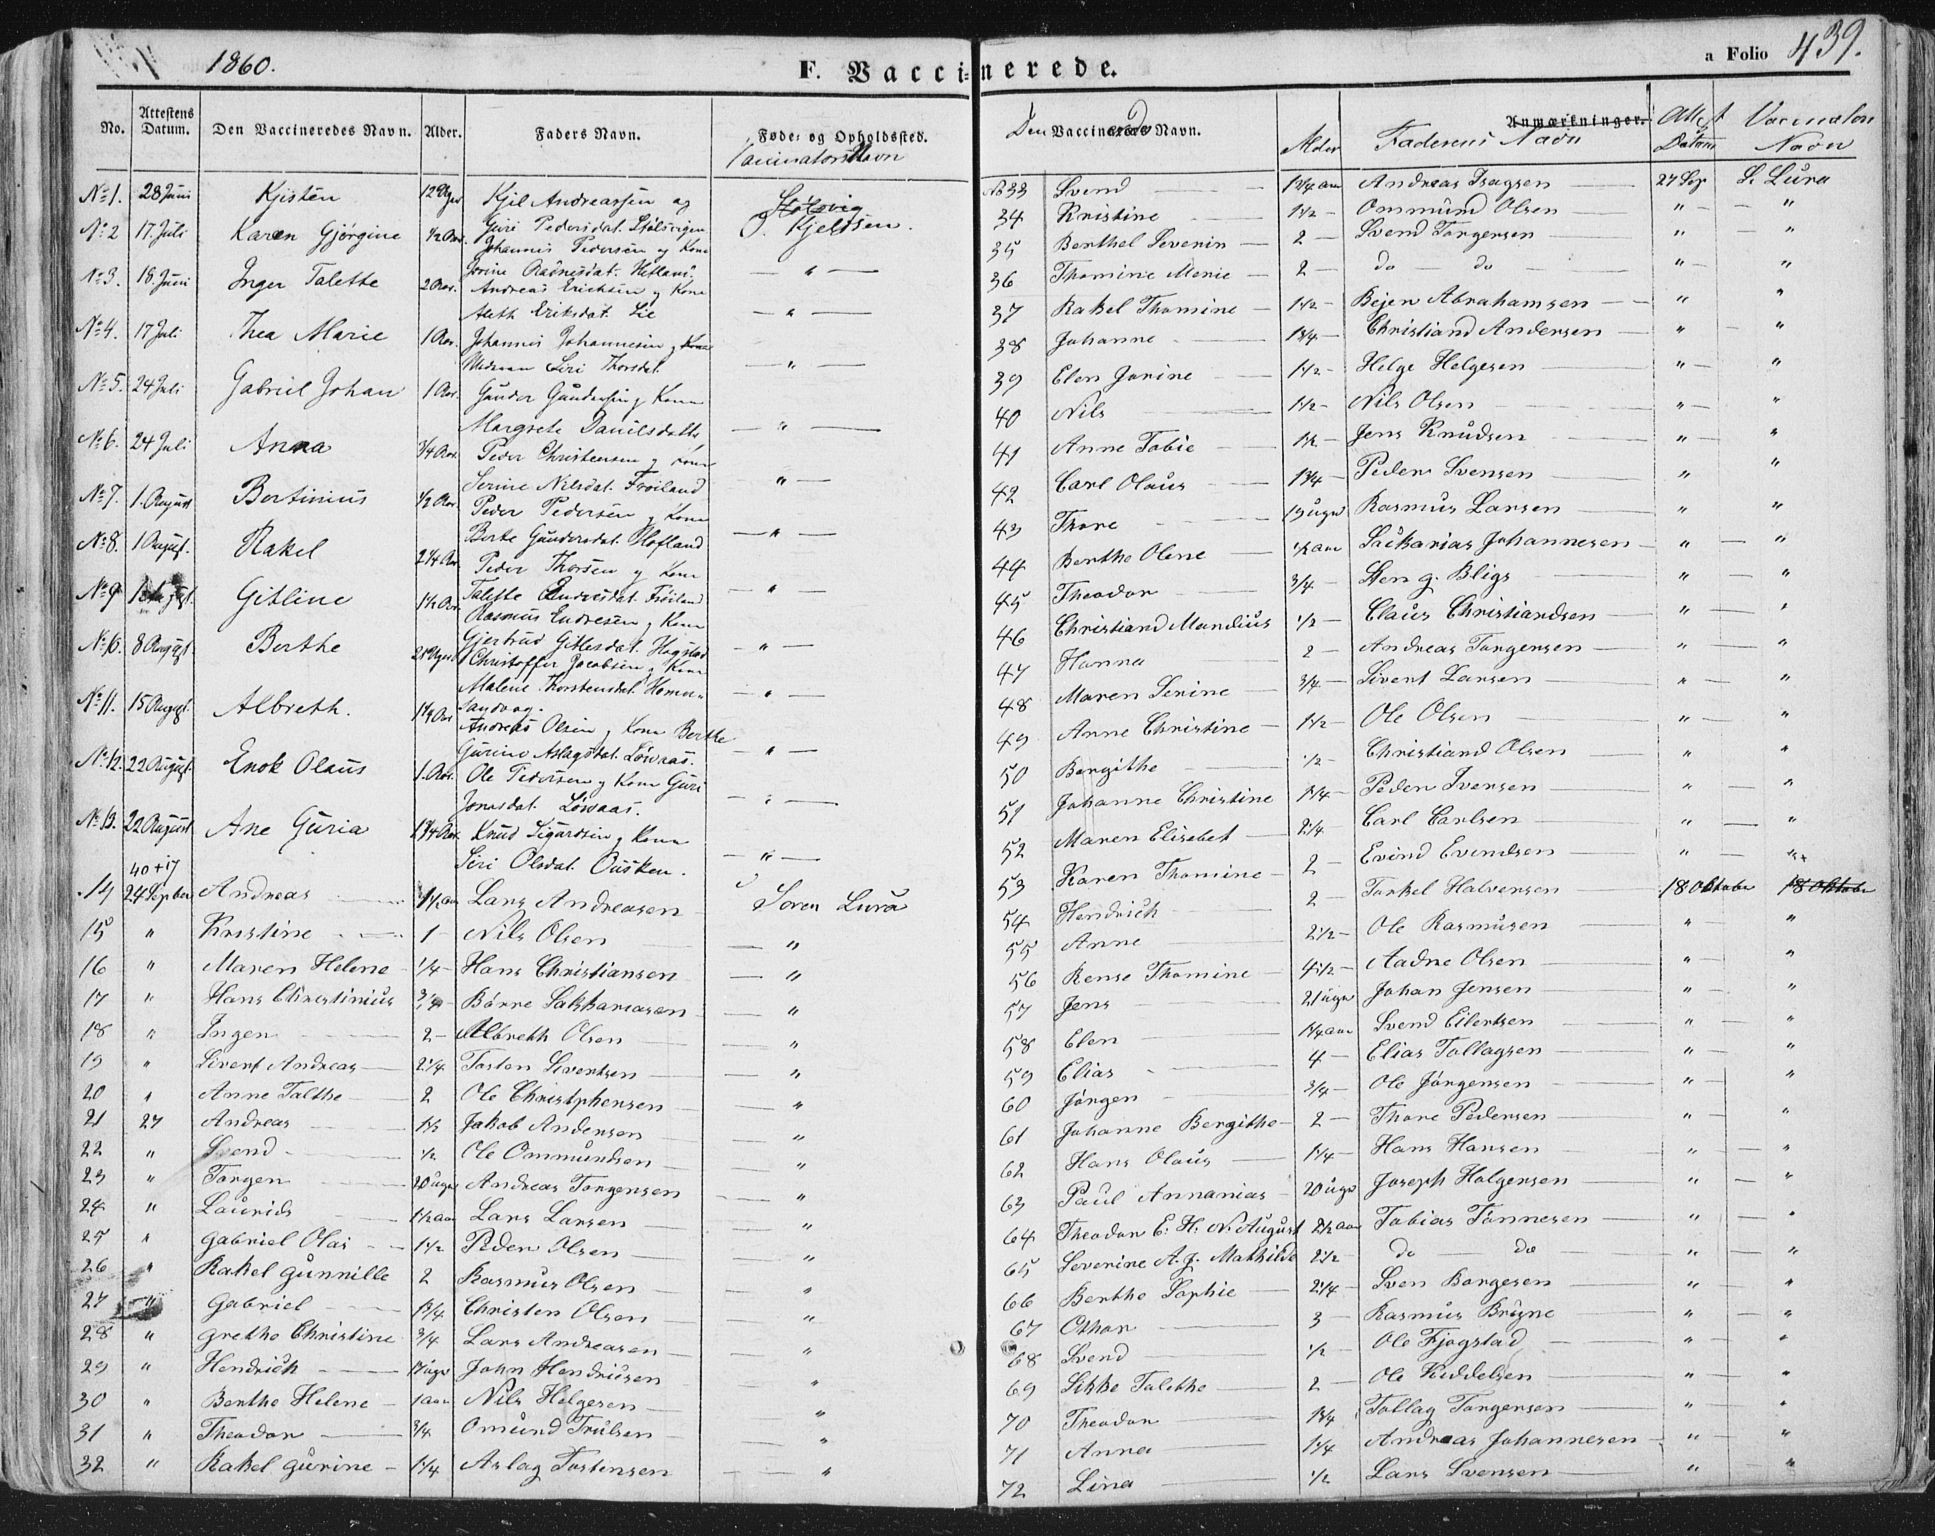 1860.
F. Vaccinerede.
a Folio 439.
No. Attestens Datum. Den Vaccineredes Navn. Alder. Faders Navn. Føde- og Opholdssted.
Vaccinators Navn
No 1. 28 Juni Kjisten 12 Uger Kjel Andreassen og
Guri Pedersdat. Stølsvigen P. Kjeldsen.
No 2 17. Juli Karen Gjørgine 1/2 Aar. Johannis Pedersen og Kone
Jorine Hetland. — " —
No 3. 18. Juni Inger Talette 2 Aar. Andreas Ericksen og Kone
Aleth Eriksdat. Lie — " —
No 4. 17 Juli Thea Marie 1 Aar. Johannis Johannesen og Kone
Siri Thorsdat. — " —
No 5. 24 Juli Gabriel Johan 1 Aar. Gunder Gundersen og Kone
Margrete Danielsdatter — " —
No 6. 24 Juli Anna 3/4 Aar. Peder Christensen og Kone
Serine Nilsdat. Frøiland — " —
No 7. 1. August Bertinius 1/2 Aar. Peder Pedersen og Kone
Berte Gundersdat. Hofland — " —
No 8. 1 August. Rakel 2 1/4 Aar Peder Thorsen og Kone
Talette Endresdat. Frøiland — " —
No 9 Gitline 1 1/2 Aar Rasmus Endresen og Kone
Gjertrud Gitlesdat. Hogstad — " —
No 10. 8 August Berthe 21 Uger Christoffer Jacobsen og Kone
Malene Thorstensdat. Hommersandvog. — " —
No 11. 15 August. Albreth. 1 1/4 Aar Andreas Olsen og Kone Berthe
Gurine Aslagsdat. Løwaas. — " —
No 12. 22 August. Enok Olaus 1. Aar. Ole Pedersen og Kone Guri
Jonasdat. Løwaas. — " —
No 13. 22 August Ane Guria 1 1/4 Aar. Knud Sigurdsen og Kone
Siri Olsdat. Ousken. — " —
40+17
14 24 September Andreas 1 1/2 aar Lars Andreasen Søren Lura
15 " Kristine 1 — Nils Olsen — "
16 " Maren Helene 1/4 — Hans Christiansen — "
17 " Hans Christinius 3/4 — Børre Sakkariasen — "
18 " Inger 2 — Albreth Olsen — "
19 " Sivert Andreas 2 1/4 Tosten Sivertsen "
20 " Anne Talthe 2 Ole Christphersen "
21 27 Andreas 1 1/2 Jakob Andersen "
22 " Svend 1/2 Ole Ommundsen "
23 " Torger 20 uger Andreas Torgersen "
24 " Laurids 1 1/2 aar Lars Larsen "
25 " Gabriel Olai 1 1/2 Peder Olsen "
26 " Rakel Gunnille 2 Rasmus Olsen "
27 " Gabriel 1 3/4 Christen Olsen "
28 " Grethe Christine 3/4 Lars Andreasen "
29 " Hendrich 17 uger John Hendriksen "
30 " Berthe Helene 1 aar Nils Helgesen "
31 " Theodor 3/4 Omund Trulsen "
32 " Rakel Gurine 1 1/4 Aslag Tostensen "
Den Vaccineredes Navn. Alder Anmærkninger. Faderens Navn Attest Datum Vaccinators Navn
No 33 Svend 1 3/4 aar Andreas Tsagsen 27 Sep S. Lura
34 Kristine 1 1/2 — Ommund Olsen " — "
35 Berthel Severin 2 — Svend Torgersen " — "
36 Thomine Merie 2 — do — do " — "
37 Rakel Thomine 1 1/2 — Bejer Abrahamsen " "
38 Johanne 1 3/4 — Christiand Andersen " — "
39 Elen Jorine 1 1/2 — Helge Helgesen " — "
40 Nils 1 1/2 — Nils Olsen " — "
41 Anne Tobie 1 1/2 — Jens Knudsen " — "
42 Carl Olaus 1 3/4 — Peder Svensen " "
43 Thore 19 uger Rasmus Larsen " "
44 Berthe Olene 1/2 aar Sackarias Johannesen " — "
45 Theodor 3/4 — Sten g. Bligs " — "
46 Christiand Mandius 1/2 — Claus Christiandsen " — "
47 Hanna 2 — Andreas Torgersen " — "
48 Maren Serine 3/4 — Sivert Larsen " — "
49 Anne Christine 1 1/2 Ole Olsen " — "
50 Bergithe 1/2 — Christiand Olsen " "
51 Johanne Christine 1 3/4 — Peder Iversen " — "
52 Maren Elisebet 2 1/4 — Carl Carlsen " — "
53 Karen Thomine 2 — Evind Evindsen " — "
54 Hendrich 2 — Torkel Halvorsen 18 Oktober 18 Oktober
55 Anne 2 1/2 — Ole Rasmusen " "
56 Rense Thomine 4 1/2 — Aadne Olsen " — "
57 Jens 21 uger Johan Jensen " — "
58 Elen 1 1/4 aar Svend Eilertsen " — "
59 Elias 4 — Elias Tollagsen " — "
60 Jørgen 3/4 — Ole Jørgensen " — "
61 Johanne Bergithe 2 — Thore Pedersen " — "
62 Hans Olaus 1 1/4 — Hans Hansen " — "
63 Paul Annanias 20 uger Joseph Holgersen " — "
64 Theodor E. H. N. August 2 1/2 aar Tobias Tønnesen " — "
65 Severine A. J. Mathilde 2 1/2 do — do " — "
66 Berthe Sophie 2 1/4 — Sven Borgesen " — "
67 Othar 3 — Rasmus Bryne " — "
68 Svend 1/2 — Ole Fjogstad " — "
69 Sikke Talethe 2 — Ole Kiddelsen " — "
70 Theodor 1 3/4 Tollag Torgersen " — "
71 Anna 1 1/4 Andreas Johannesen " — "
72 Lina 1/2 Lars Svensen " — "